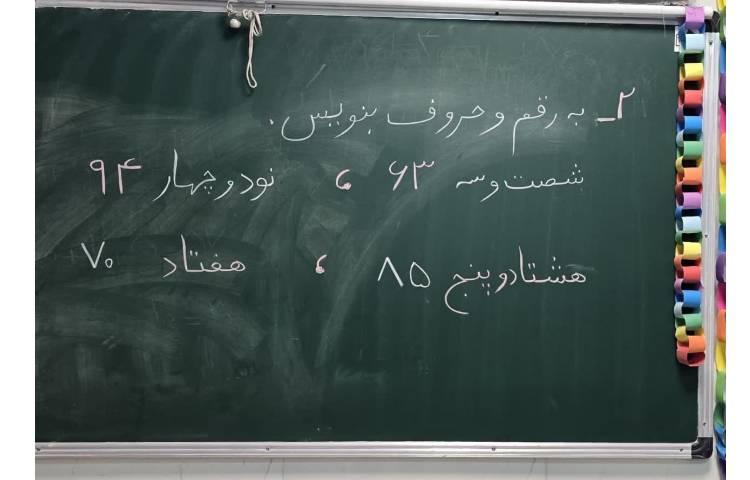 ۲_ به رقم و حروف بنویس.
شصت و سه ۶۳ ، نود و چهار ۹۴
هشتاد و پنج ۸۵ ، هفتاد ۷۰